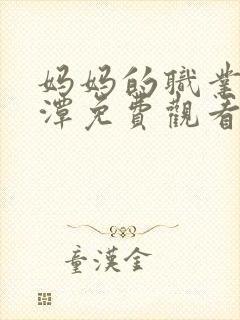 妈妈的職業
潭免費觀看
童漢金